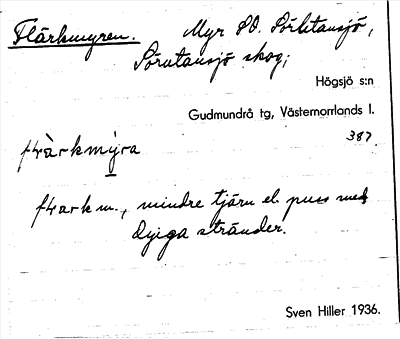 Flärkmyren. Myr SO. Sörutansjö,
Sörutansjö skog;
Högsjö s:n
Gudmundrå tg, Västernorrlands l.
387
flärkmýra
flark m., mindre tjärn el. puss med
dyiga stränder.
Sven Hiller 1936.